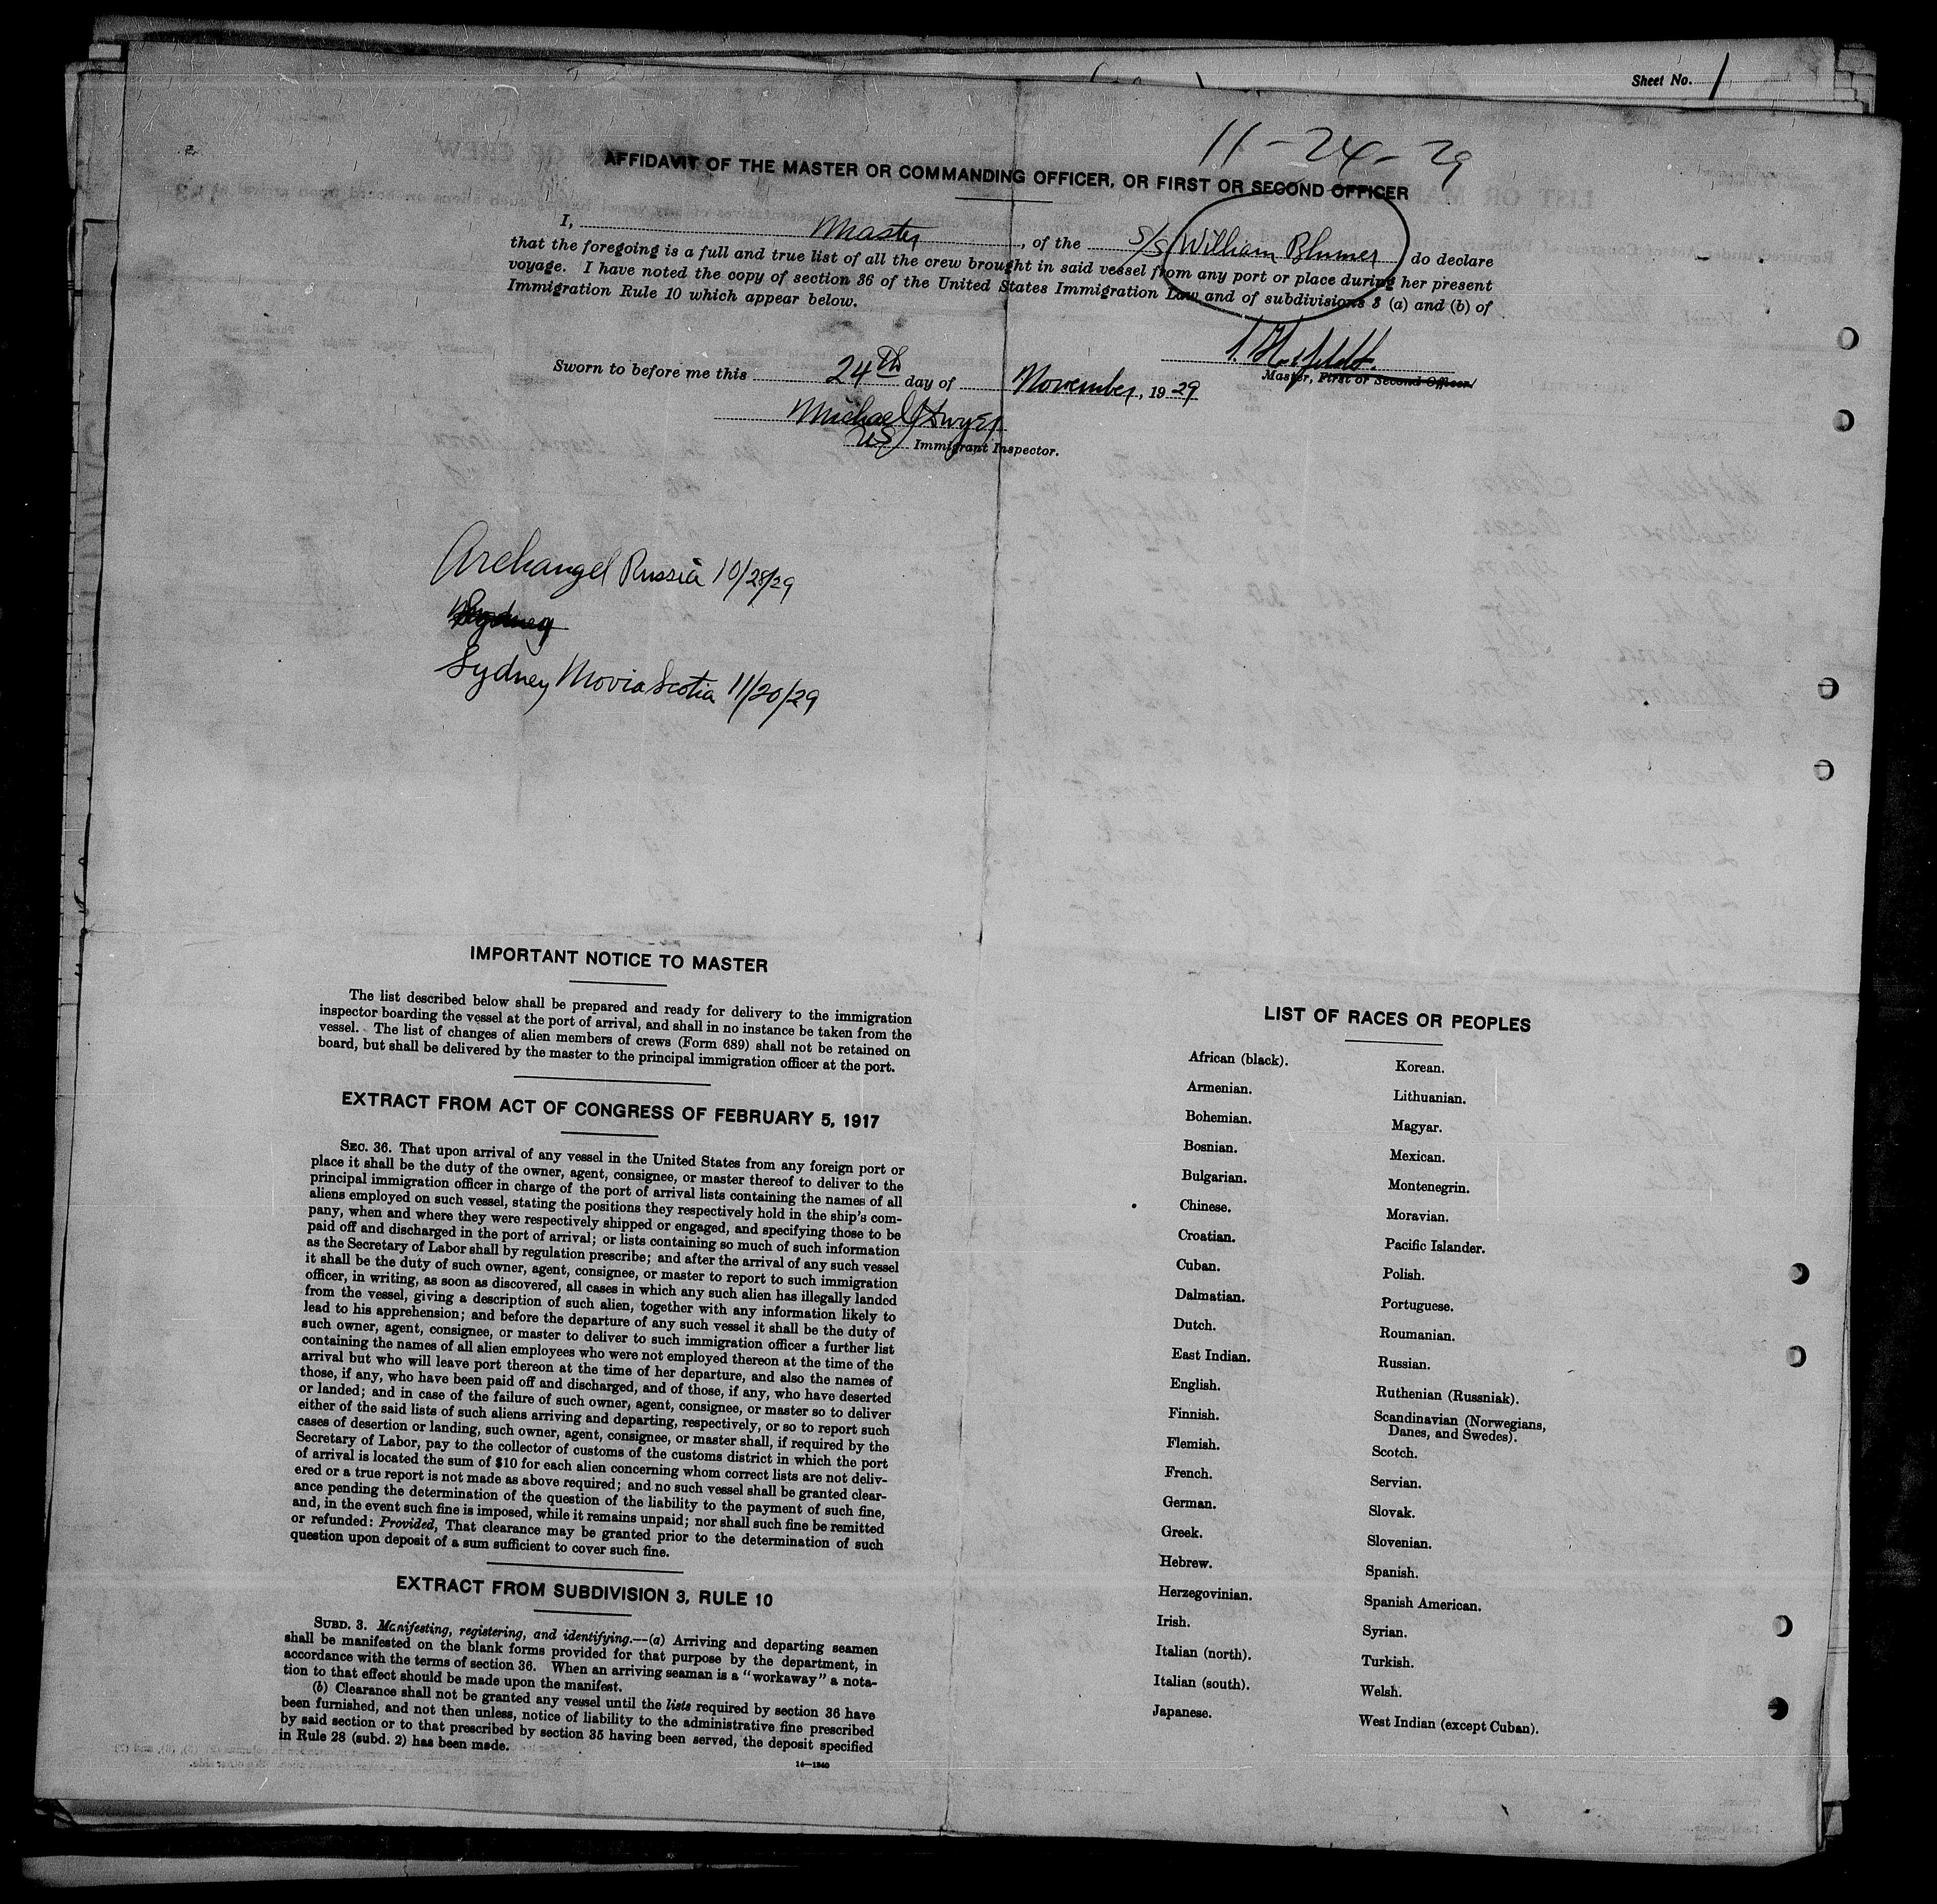 Sheet No. 1
11-24-29
AFFIDAVIT OF THE MASTER OR COMMANDING OFFICER, OR FIRST OR SECOND OFFICER
I, Master, of the S/S William Blumer do declare
that the foregoing is a full and true list of all the crew brought in said vessel from any port or place during her present
voyage. I have noted the copy of section 36 of the United States Immigration Law and of subdivisions 3 (a) and (b) of
Immigration Rule 10 which appear below.
Master, First or Second Officer
Sworn to before me this 24th day of November, 1929
Michael J Dwyer
US Immigrant Inspector.
Archangel Russia 10/28/29
Sydney
Sydney Novia Scotia 11/20/29
IMPORTANT NOTICE TO MASTER
The list described below shall be prepared and ready for delivery to the immigration
inspector boarding the vessel at the port of arrival, and shall in no instance be taken from the
vessel. The list of changes of alien members of crews (Form 689) shall not be retained on
board, but shall be delivered by the master to the principal immigration officer at the port.
EXTRACT FROM ACT OF CONGRESS OF FEBRUARY 5, 1917
SEC. 36. That upon arrival of any vessel in the United States from any foreign port or
place it shall be the duty of the owner, agent, consignee, or master thereof to deliver to the
principal immigration officer in charge of the port of arrival lists containing the names of all
aliens employed on such vessel, stating the positions they respectively hold in the ship's com-
pany, when and where they were respectively shipped or engaged, and specifying those to be
paid off and discharged in the port of arrival; or lists containing so much of such information
as the Secretary of Labor shall by regulation prescribe; and after the arrival of any such vessel
it shall be the duty of such owner, agent, consignee, or master to report to such immigration
officer, in writing, as soon as discovered, all cases in which any such alien has illegally landed
from the vessel, giving a description of such alien, together with any information likely to
lead to his apprehension; and before the departure of any such vessel it shall be the duty of
such owner, agent, consignee, or master to deliver to such immigration officer a further list
containing the names of all alien employees who were not employed thereon at the time of the
arrival but who will leave port thereon at the time of her departure, and also the names of
those, if any, who have been paid off and discharged, and of those, if any, who have deserted
or landed; and in case of the failure of such owner, agent, consignee, or master so to deliver
either of the said lists of such aliens arriving and departing, respectively, or so to report such
cases of desertion or landing, such owner, agent, consignee, or master shall, if required by the
Secretary of Labor, pay to the collector of customs of the customs district in which the port
of arrival is located the sum of $10 for each alien concerning whom correct lists are not deliv-
ered or a true report is not made as above required; and no such vessel shall be granted clear-
ance pending the determination of the question of the liability to the payment of such fine,
and, in the event such fine is imposed, while it remains unpaid; nor shall such fine be remitted
or refunded: Provided, That clearance may be granted prior to the determination of such
question upon deposit of a sum sufficient to cover such fine.
EXTRACT FROM SUBDIVISION 3, RULE 10
SUBD. 3. Manifesting, registering, and identifying.—(a) Arriving and departing seamen
shall be manifested on the blank forms provided for that purpose by the department, in
accordance with the terms of section 36. When an arriving seaman is a "workaway" a nota-
tion to that effect should be made upon the manifest.
(b) Clearance shall not be granted any vessel until the lists required by section 36 have
been furnished, and not then unless, notice of liability to the administrative fine prescribed
by said section or to that prescribed by section 35 having been served, the deposit specified
in Rule 28 (subd. 2) has been made.
14—1240
LIST OF RACES OR PEOPLES
African (black).
Armenian.
Bohemian.
Bosnian.
Bulgarian.
Chinese.
Croatian.
Cuban.
Dalmatian.
Dutch.
East Indian.
English.
Finnish.
Flemish.
French.
German.
Greek.
Hebrew.
Herzegovinian.
Irish.
Italian (north).
Italian (south).
Japanese.
Korean.
Lithuanian.
Magyar.
Mexican.
Montenegrin.
Moravian.
Pacific Islander.
Polish.
Portuguese.
Roumanian.
Russian.
Ruthenian (Russniak).
Scandinavian (Norwegians,
Danes, and Swedes).
Scotch.
Servian.
Slovak.
Slovenian.
Spanish.
Spanish American.
Syrian.
Turkish.
Welsh.
West Indian (except Cuban).